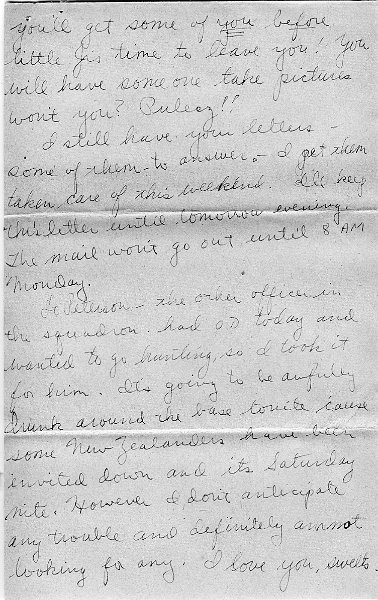 you'll get some of you before
little jr's time to leave you! You
will have someone take pictures
won't you? Puleez!!
I still have your letters -
some of them - to answer. I get them
taken care of this weekend. I'll keep
this letter until tomorrow evening.
The mail won't go out until 8 AM
Monday.
Lt Peterson - the other officer in
the squadron had OD today and
wanted to go hunting, so I took it
for him. It's going to be awfully
drunk around the base tonite 'cause
some New Zealanders have been
invited down and its Saturday
nite. However I don't antecipate
any trouble and definitely am not
looking for any. I love you, sweets.